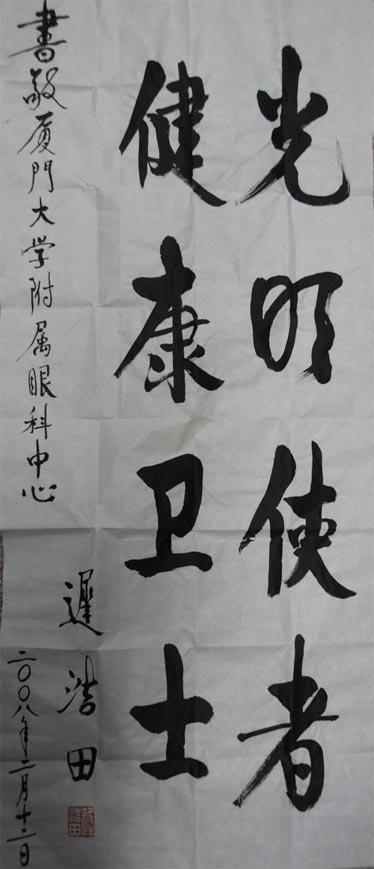 光明使者
健康卫士
書敬厦門大学附属眼科中心
遲浩田
二〇〇八年二月十二日